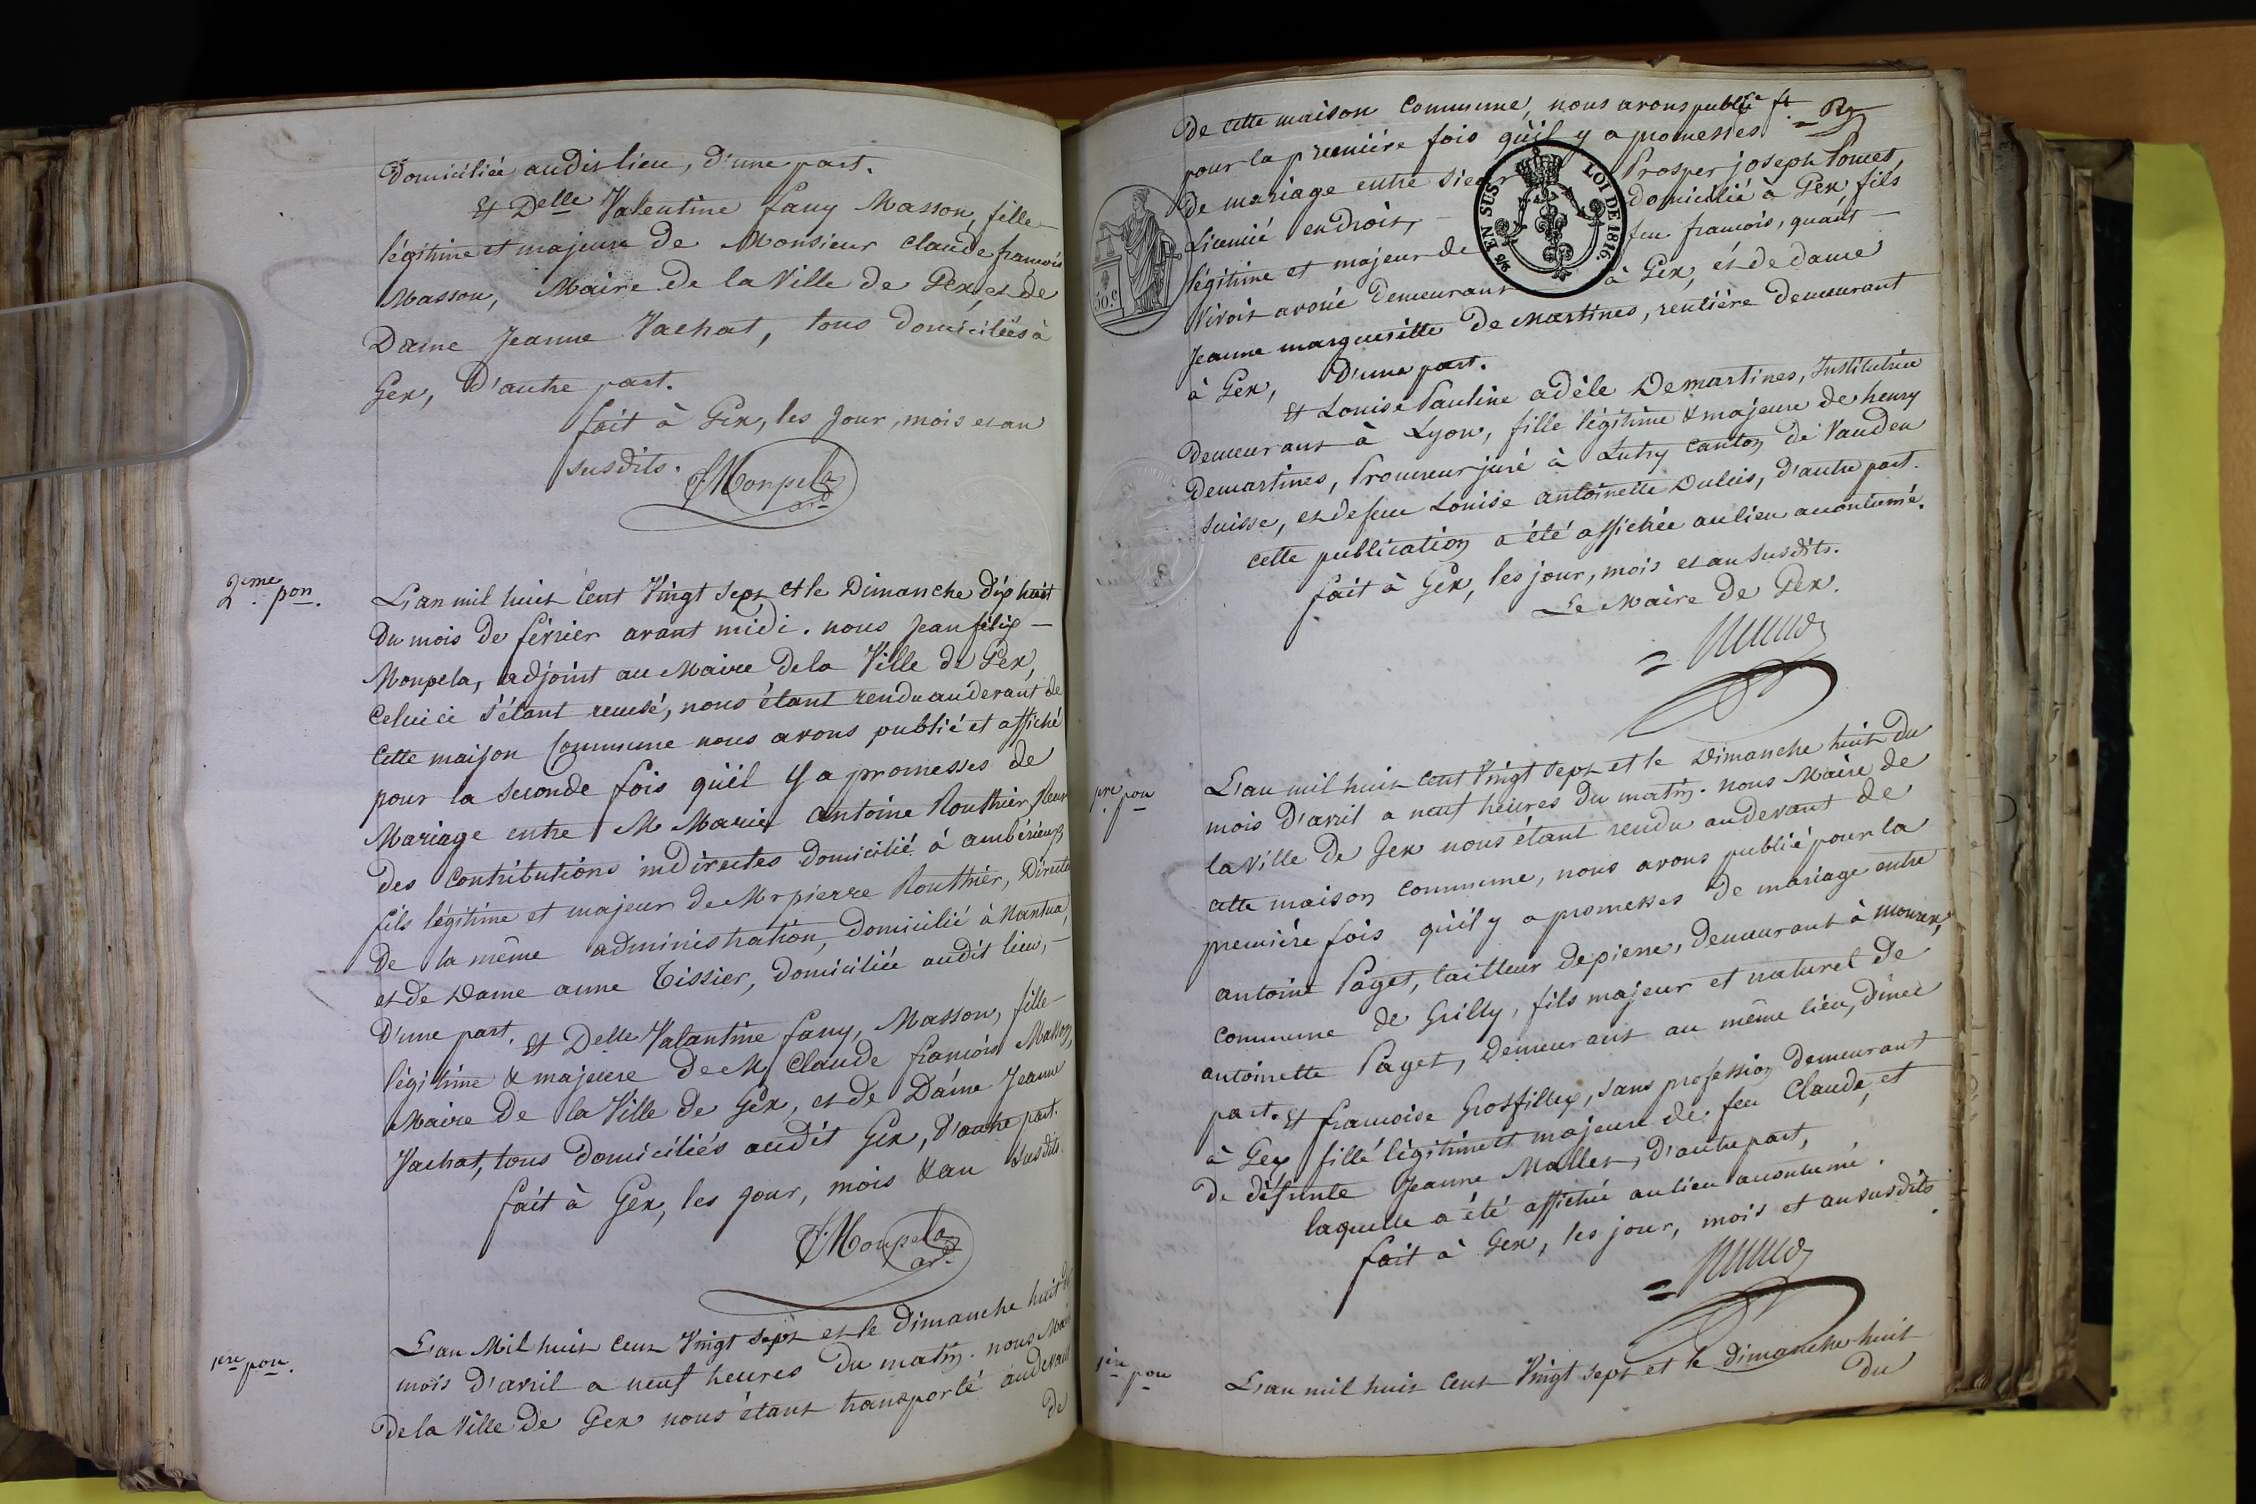 Domiciliée audit lieu, d'une part.
Et Delle Valentine fany Masson, fille
légitime et majeure de Monsieur Claude françois
Masson, Maire de la Ville de Gex, et de
Dame Jeanne Vachat, tous domiciliés à
Gex, d'autre part.
fait à Gex, les jour, mois et an
susdits.
JMonpela
adt
2eme pon.
L'an mil huit Cent Vingt Sept et le Dimanche dix huit
du mois de février avant midi. nous Jean félix
Monpela, adjoint au Maire de la Ville de Gex,
Celui ci s'étant recusé, nous étant rendu au devant de
Cette maison Commune nous avons publié et affiché
pour la Seconde fois qu'il y a promesses de
Mariage entre M Marie antoine Routhier,
des Contributions indirectes domicilié à ambérieux
fils légitime et majeur de Mr pierre Routhier, Directe
de la même administration, domicilié à Nantua,
et de Dame anne Tissier, domiciliée audit lieu,
D'une part. Et Delle Valantine fany, Masson, fille
légitime & majeure de M Claude françois Masson,
Maire de la Ville de Gex, et de Dame Jeanne
Vachat, tous domiciliés audit Gex, d'autre part.
fait à Gex, les jour, mois & an susdits.
JMonpela
adt
1ere pon.
L'an Mil huit Cent Vingt Sept et le dimanche huit du
mois d'avril a neuf heures du matin. nous Maire
de la Ville de Gex nous étant transporté au devant
de
de cette maison Commune, nous avons publié
pour la première fois qu'il y a promesses
de mariage entre sieur Prosper joseph Poncet,
Licencié en droit, domicilié à Gex fils
légitime et majeur de feu françois, quand
vivoit avoué demeurant à Gex, et de dame
Jeanne margueritte de Martines, rentière demeurant
à Gex, d'une part.
EN SUS
LOI DE 1816.
50 c
Et Louise Pauline adèle Demartines, Institutrice
demeurant à Lyon, fille légitime & majeure de henry
demartines, Procureur juré à Lutry Canton de Vaud en
Suisse, et de feue Louise antoinette Dulcis, d'autre part.
cette publication a été affichée au lieu accoutumé.
fait à Gex, les jour, mois et an susdits.
Le Maire de Gex.
1re pon
L'an mil huit Cent Vingt Sept et le Dimanche huit du
mois d'avril a neuf heures du matin. nous Maire de
la Ville de Gex nous étant rendu au devant de
cette maison commune, nous avons publié pour la
première fois qu'il y a promesses de mariage entre
antoine Paget, tailleur de pierre, demeurant à mourex,
commune de Grilly, fils majeur et naturel de
antoinette Paget, demeurant au même lieu, d'une
part. Et françoise Grosfillex, sans profession demeurant
à Gex fille légitime et majeure de feu Claude, et
de défunte Jeanne Mallet, d'autre part,
laquelle a été affichée au lieu accoutumé.
fait à Gex, les jour, mois et an susdits
1ère pon
L'an mil huit Cent Vingt Sept et le dimanche huit
du